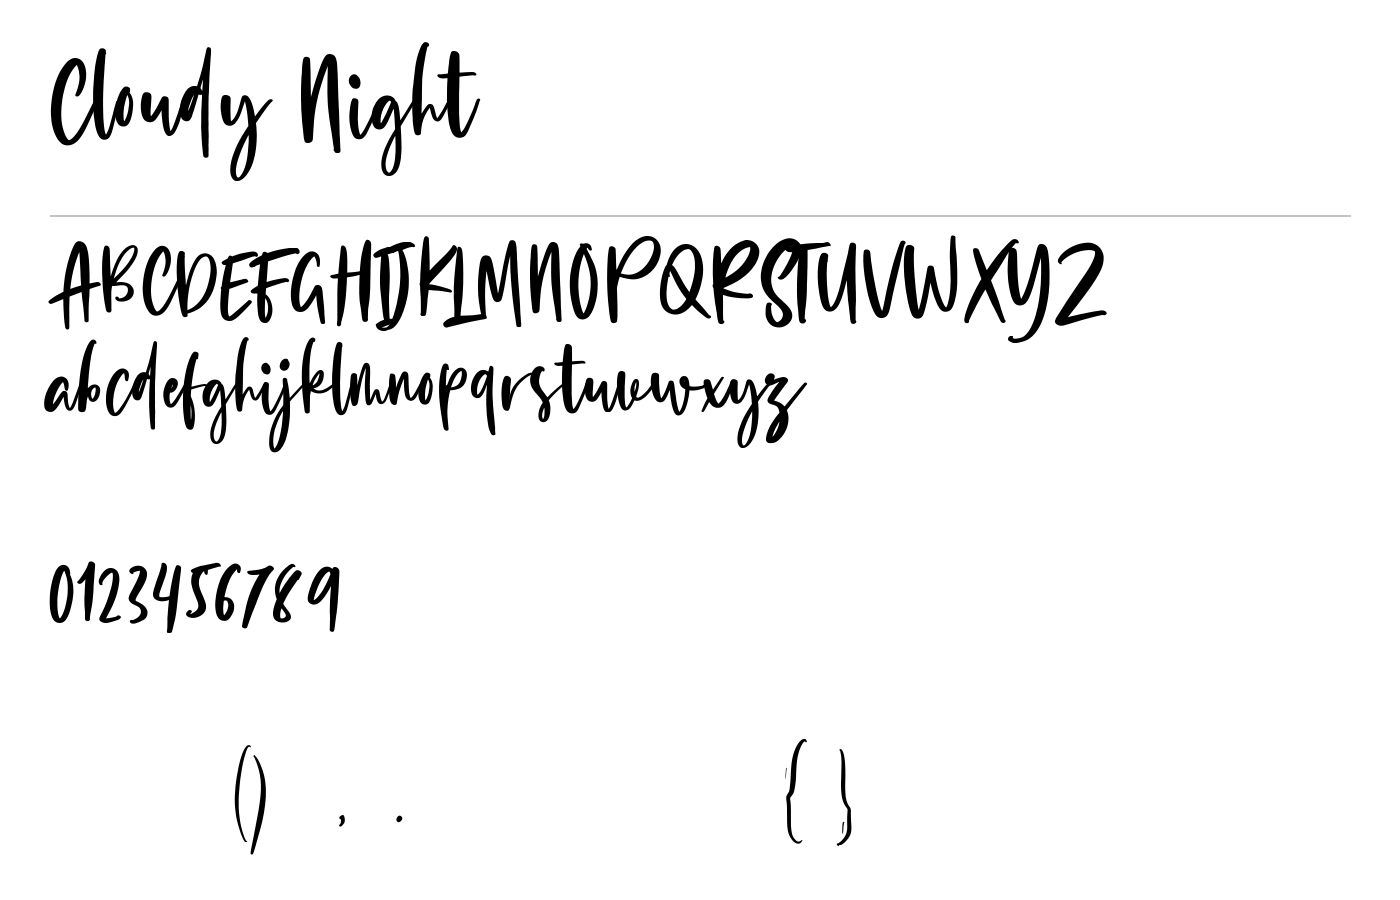 Cloudy Night
ABCDEFGHIJKLMNOPQRSTUVWXYZ
abcdefghijklmnopqrstuvwxyz
0123456789
() , . { }